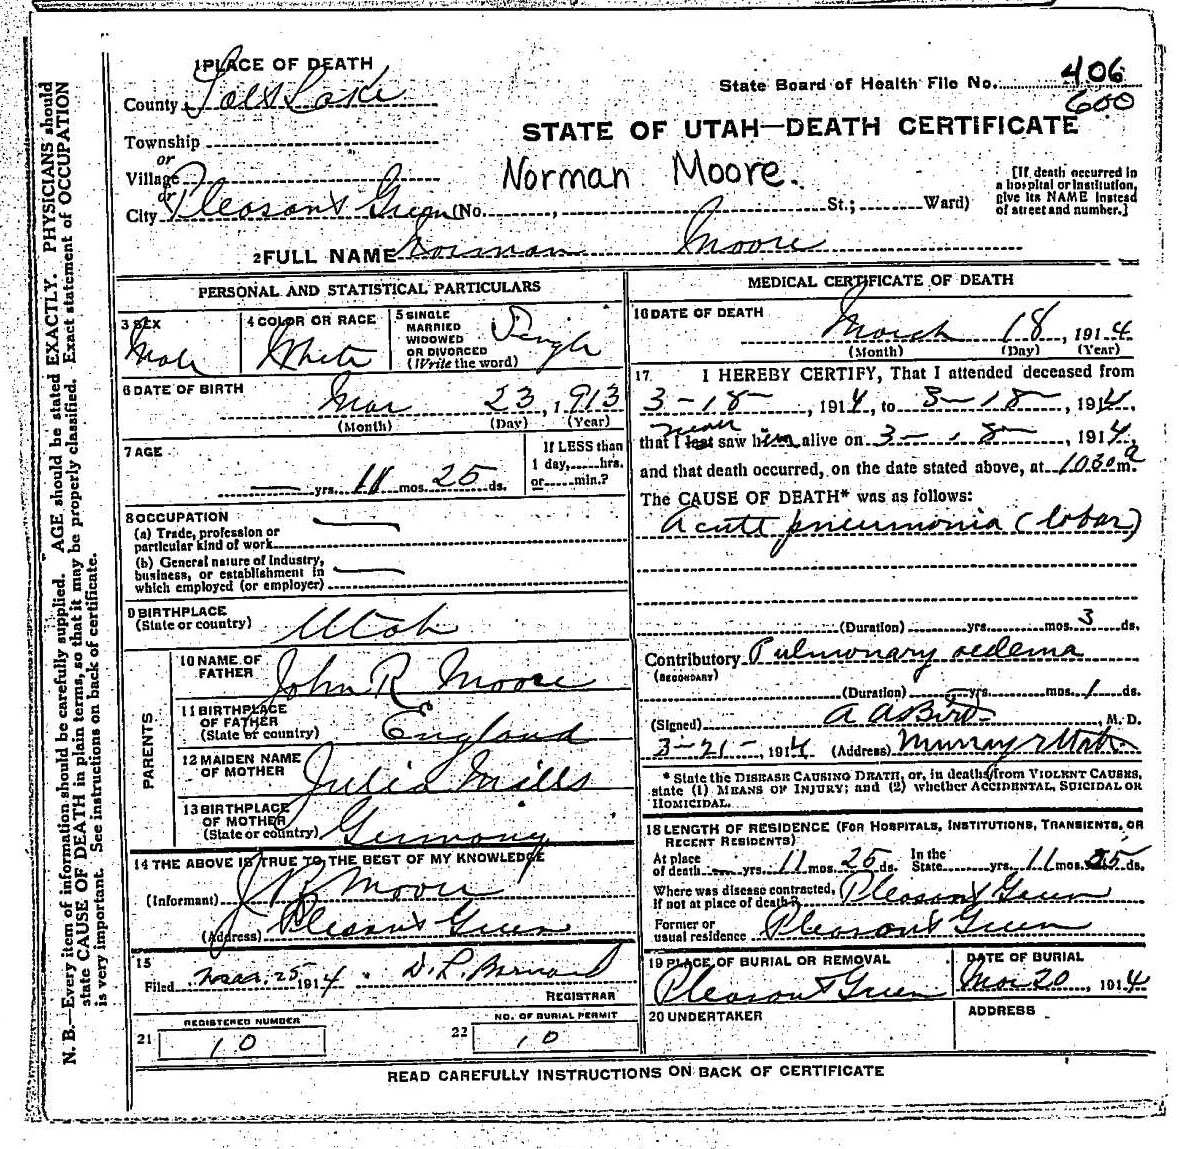 N. B.—Every item of information should be carefully supplied. AGE should be stated EXACTLY. PHYSICIANS should
state CAUSE OF DEATH in plain terms, so that it may be properly classified. Exact statement of OCCUPATION
is very important. See instructions on back of certificate.
1 PLACE OF DEATH
State Board of Health File No. 406
600
County Salt Lake
STATE OF UTAH—DEATH CERTIFICATE
Township
or
Village
or
Norman Moore.
[If death occurred in
a hospital or institution,
give its NAME instead
of street and number.]
City Pleasant Green (No. , St.; Ward)
2 FULL NAME Norman Moore
PERSONAL AND STATISTICAL PARTICULARS
3 SEX
Male
4 COLOR OR RACE
White
5 SINGLE
MARRIED
WIDOWED
OR DIVORCED
(Write the word)
Single
6 DATE OF BIRTH
Mar 23, 1913
(Month) (Day) (Year)
7 AGE
— yrs. 11 mos. 25 ds.
If LESS than
1 day, hrs.
or min.?
8 OCCUPATION
(a) Trade, profession or
particular kind of work
(b) General nature of Industry,
business, or establishment in
which employed (or employer)
9 BIRTHPLACE
(State or country) Utah
PARENTS
10 NAME OF
FATHER John R Moore
11 BIRTHPLACE
OF FATHER
(State or country) England
12 MAIDEN NAME
OF MOTHER Julia Mills
13 BIRTHPLACE
OF MOTHER
(State or country) Germany
14 THE ABOVE IS TRUE TO THE BEST OF MY KNOWLEDGE
(Informant) J R Moore
(Address) Pleasant Green
15
Filed Mar. 25 1914 D. L. Barnard
REGISTRAR
REGISTERED NUMBER
21 10
NO. OF BURIAL PERMIT
22 10
MEDICAL CERTIFICATE OF DEATH
16 DATE OF DEATH
March 18, 1914
(Month) (Day) (Year)
17 I HEREBY CERTIFY, That I attended deceased from
3-18-, 1914, to 3-18-, 1914,
that I last saw him alive on 3-18-, 1914,
and that death occurred, on the date stated above, at 10 30 a m.
The CAUSE OF DEATH* was as follows:
Acute pneumonia (lobar)
(Duration) yrs. mos. 3 ds.
Contributory Pulmonary oedema
(SECONDARY)
(Duration) yrs. mos. 1 ds.
(Signed) A A Bird, M. D.
3-21-, 1914 (Address) Murray Utah
* State the DISEASE CAUSING DEATH, or, in deaths from VIOLENT CAUSES,
state (1) MEANS OF INJURY; and (2) whether ACCIDENTAL, SUICIDAL OR
HOMICIDAL.
18 LENGTH OF RESIDENCE (FOR HOSPITALS, INSTITUTIONS, TRANSIENTS, OR
RECENT RESIDENTS)
At place
of death yrs. 11 mos. 25 ds. In the
State yrs. 11 mos. 25 ds.
Where was disease contracted,
If not at place of death? Pleasant Green
Former or
usual residence Pleasant Green
19 PLACE OF BURIAL OR REMOVAL
Pleasant Green
DATE OF BURIAL
Mar 20, 1914
20 UNDERTAKER
ADDRESS
READ CAREFULLY INSTRUCTIONS ON BACK OF CERTIFICATE